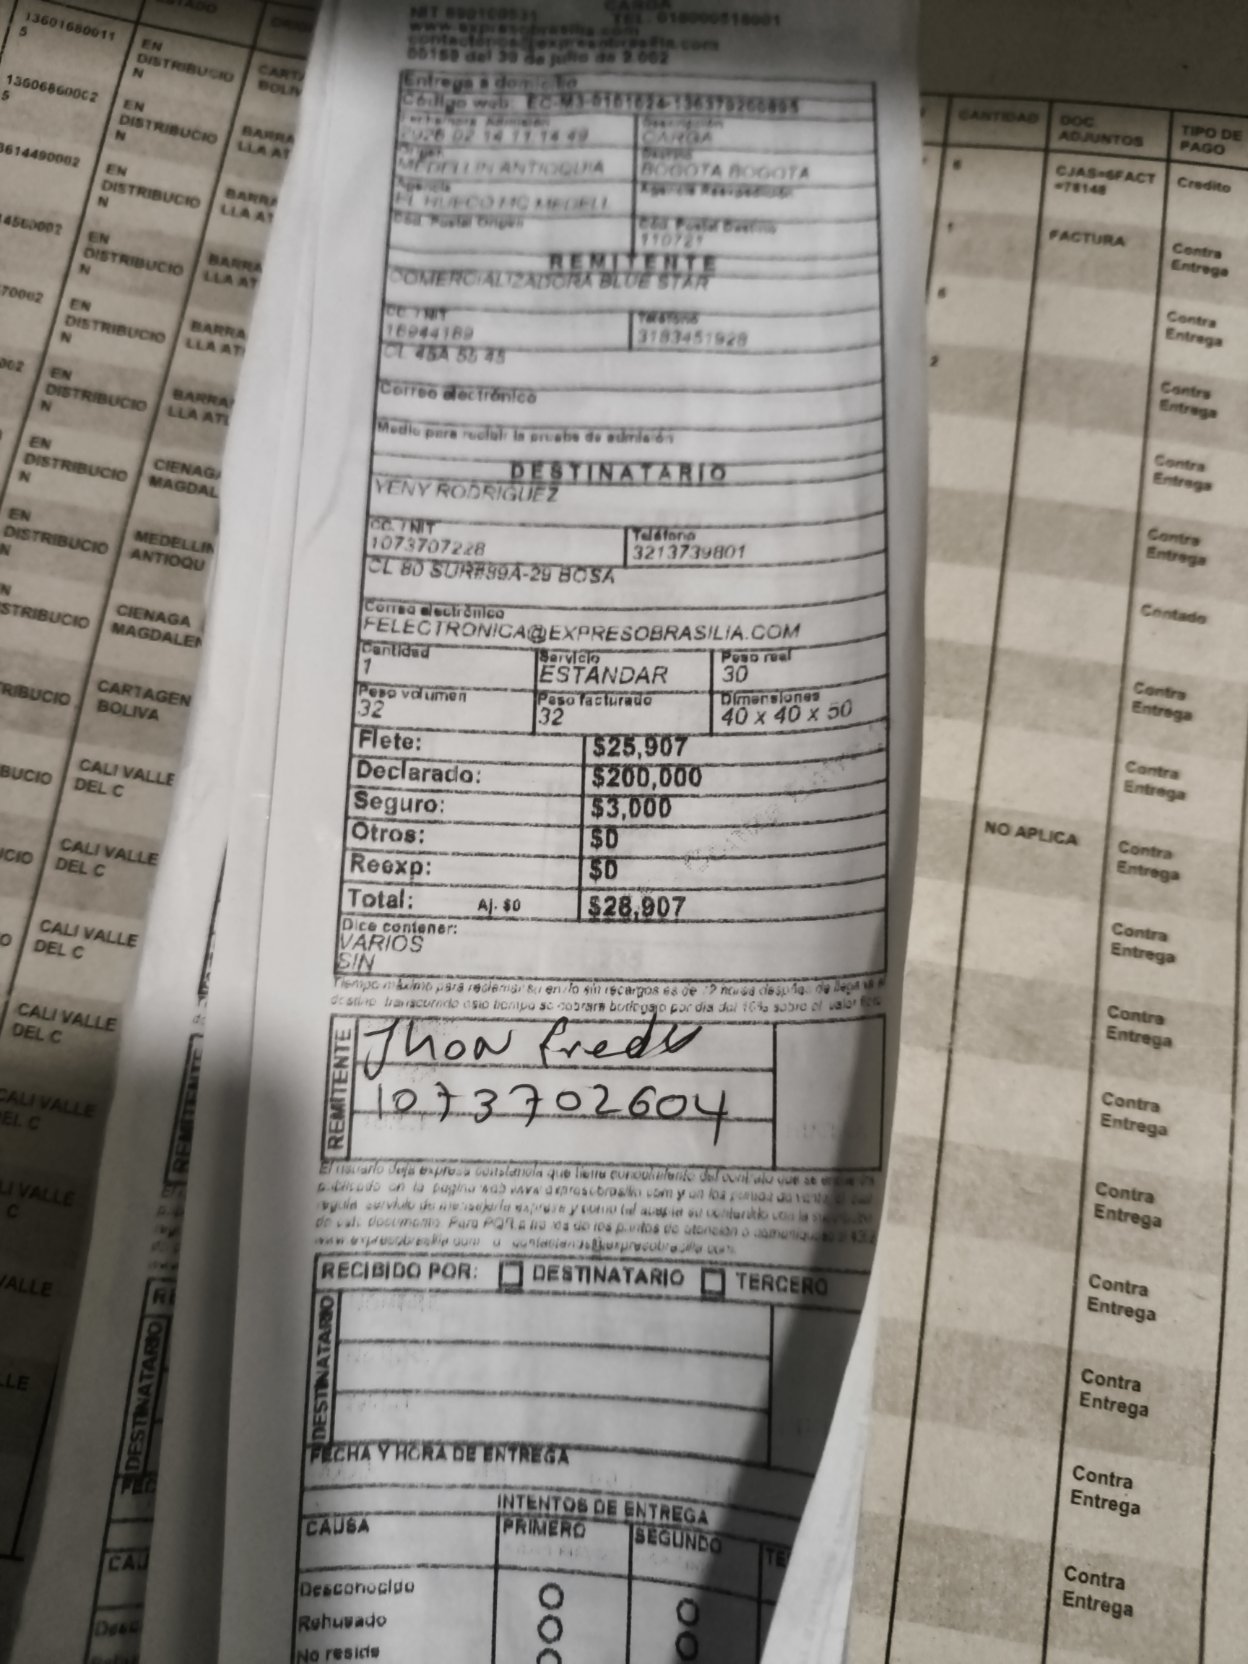 CARGA
NIT 890100531 TEL. 018000518001
www.expresobrasilia.com
contactenos@expresobrasilia.com
00189 del 30 de julio de 2.002
Entrega a domicilio
Código web: EC-M3-0101024-136370200895
Fecha/hora Admisión Descripción
2026 02 14 11:14:49 CARGA
Origen Destino
MEDELLIN ANTIOQUIA BOGOTA BOGOTA
Agencia Agencia Reexpedición
EL HUECO MC MEDELL
Cód. Postal Origen Cód. Postal Destino
110721
REMITENTE
COMERCIALIZADORA BLUE STAR
CC. / NIT Teléfono
16944189 3183451928
CL 45A 55 45
Correo electrónico
Medio para recibir la prueba de admisión
DESTINATARIO
YENY RODRIGUEZ
CC. / NIT Teléfono
1073707228 3213739801
CL 80 SUR#89A-29 BOSA
Correo electrónico
FELECTRONICA@EXPRESOBRASILIA.COM
Cantidad Servicio Peso real
1 ESTANDAR 30
Peso volumen Peso facturado Dimensiones
32 32 40 x 40 x 50
Flete: $25,907
Declarado: $200,000
Seguro: $3,000
Otros: $0
Reexp: $0
Total: Aj. $0 $28,907
Dice contener:
VARIOS
SIN
Tiempo máximo para reclamar su envío sin recargos es de 72 horas después de
destino transcurrido este tiempo se cobrara bodegaje por día del 10% sobre el valor
REMITENTE
Jhon Fredy
1073702604
El usuario deja expresa constancia que tiene conocimiento del contrato que se
publicado en la pagina web www.expresobrasilia.com y en los puntos de venta
regula servicio de mensajería expresa y como tal acepta su contenido con la
de este documento. Para PQR
www.expresobrasilia.com o contactenos@expresobrasilia.com
RECIBIDO POR: DESTINATARIO TERCERO
DESTINATARIO
FECHA Y HORA DE ENTREGA
INTENTOS DE ENTREGA
CAUSA PRIMERO SEGUNDO
Desconocido
Rehusado
No reside
13601680011
5
EN
DISTRIBUCIO
N
13606860002
5
EN
DISTRIBUCIO
N
BARRA
LLA AT
3614490002
EN
DISTRIBUCIO
N
BARRA
LLA AT
EN
DISTRIBUCIO
N
BARRA
LLA AT
70002
EN
DISTRIBUCIO
N
BARRA
LLA AT
002
EN
DISTRIBUCIO
N
BARRA
LLA ATL
EN
DISTRIBUCIO
N
CIENAGA
MAGDAL
EN
DISTRIBUCIO
N
MEDELLIN
ANTIOQU
N
STRIBUCIO
CIENAGA
MAGDALEN
RIBUCIO
CARTAGEN
BOLIVA
BUCIO
CALI VALLE
DEL C
UCIO
CALI VALLE
DEL C
O
CALI VALLE
DEL C
CALI VALLE
DEL C
CALI VALLE
DEL C
LI VALLE
C
VALLE
LLE
REMITENTE
DESTINATARIO
CAU
CANTIDAD DOC. ADJUNTOS TIPO DE PAGO
6 CJAS=6FACT
=78148 Credito
1 FACTURA Contra
Entrega
6 Contra
Entrega
2 Contra
Entrega
Contra
Entrega
Contra
Entrega
Contado
Contra
Entrega
Contra
Entrega
NO APLICA Contra
Entrega
Contra
Entrega
Contra
Entrega
Contra
Entrega
Contra
Entrega
Contra
Entrega
Contra
Entrega
Contra
Entrega
Contra
Entrega